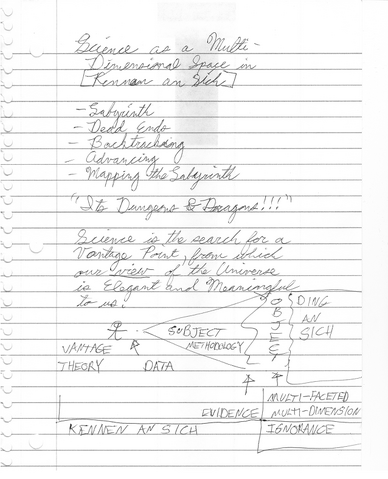 Science as a Multi-
Dimensional Space in
[Kennen an Sich]
- Labyrinth
- Dead Ends
- Backtracking
- Advancing
- Mapping the Labyrinth
"Its Dungeons & Dragons!!!"
Science is the search for a
Vantage Point, from which
our view of the Universe
is Elegant and Meaningful
to us.
OBJECT
DING
AN
SICH
SUBJECT
METHODOLOGY
VANTAGE
THEORY DATA
EVIDENCE
MULTI-FACETED
MULTI-DIMENSION
KENNEN AN SICH
IGNORANCE